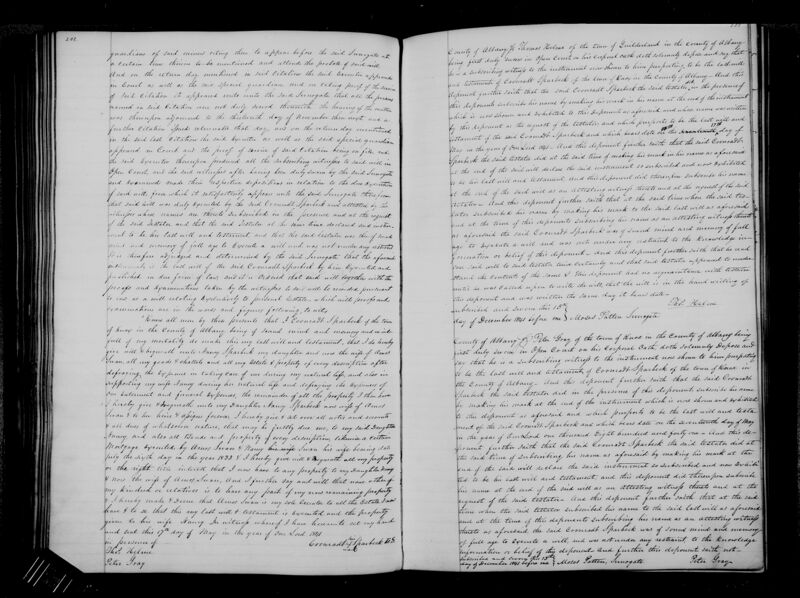 202
guardians of said minors citing them to appear before the said Surrogate at
a certain time therein to be mentioned and attend the probate of said will
And on the return day mentioned in said Citation the said Executor appeared
in Court as well as the said special guardian and on taking proof of the service
of said Citation it appeared unto the said Surrogate that all the persons
named in said Citation were not duly served therewith the hearing of the matter
was thereupon adjourned to the thirtieth day of November then next and a
further Citation issued returnable that day, and on the return day mentioned
in the said last Citation the said Executor as well as the said special guardian
appeared in Court and the proof of service of said Citation being on file and
the said Executor thereupon produced all the subscribing witnesses to said will in
Open Court and the said witnesses after being duly sworn by the said Surrogate
and examined made their respective depositions in relation to the due execution
of said will, from which it satisfactorily appears unto the said Surrogate
that said will was duly executed by the said Coenradt Sparbeck and attested by the
witnesses whose names are thereto subscribed in the presence and at the request
of the said Testator and that the said Testator at the same time declared said instru-
ment to be his last will and testament and that the said testator was of sound
mind and memory of full age to Execute a will and was not under any restraint
It is therefore adjudged and determined by the said Surrogate that the aforesaid
instrument is the last will of the said Coenradt Sparbeck by him Executed and
published in due form of law, and it is Ordered that said will together with the
proofs and Examinations taken by the witnesses to said will be recorded pursuant
to law as a will relating Exclusively to personal Estate which will proofs and
examination are in the words and figures following to wit,
Know all men by these presents that I Coenradt Sparbeck of the town
of Knox in the County of Albany being of sound mind and memory and mind-
full of my mortality do make this my last will and testament, that I do hereby
give will & bequeath unto Nancy Sparbeck my daughter and now the wife of Amos
Swan all my goods & chattels and all my Estate & property of every description after
defraying the Expenses in taking care of me during my natural life, and also in
supporting my wife Nancy during her natural life and defraying the Expenses of
our interment and funeral Expenses, the remainder of all the property I then have
I hereby give & bequeath unto my Daughter Nancy Sparbeck now wife of Amos
Swan & to her heirs & assigns forever, I hereby give & all over all notes and accounts
& all dues of whatsoever nature, that may be justly due me, to my said Daughter
Nancy and also all Bonds and property of every description, likewise a certain
Mortgage Executed by Amos Swan & Nancy his wife Swan his wife bearing date
July the sixth day in the year 1833 & I hereby give will & bequeath all my property
or the right title interest that I now have to any property to my Daughter Nancy
& now the wife of Amos Swan, And I further say and will that none other of
my kindred or relations is to have any part of my now remaining property
I hereby make & Desire that Amos Swan is my sole Executor to all the Estate I now
have & to see that this my last will & testament is Executed and the property
given to his wife Nancy In witness whereof I have hereunto set my hand
and seal this 17th day of May in the year of Our Lord 1841
In presence of
Coenradt X Sparbeck L.S.
Thos Helme
Peter Gray
County of Albany Ss Thomas Helme of the town of Guilderland in the County of Albany
being first duly sworn in Open Court on his Corporal oath doth solemnly depose and say that
he is a subscribing witness to the instrument now shown to him purporting to be the last will
and testament of Coenradt Sparbeck of the town of Knox in the County of Albany And this
deponent further saith that the said Coenradt Sparbeck the said testator did in the presence of
this deponent subscribe his name by making his mark in his name at the end of the instrument
which is now shown and exhibited to this deponent as aforesaid and whose name was written
by this deponent at the request of the testator and which purports to be the last will and
testament of the said Coenradt Sparbeck and which bears date on the seventeenth day of
May in the year of Our Lord 1841. And this deponent further saith that the said Coenradt
Sparbeck the said testator did at the said time of making his mark in his name as aforesaid
at the end of the said will declare the said instrument so subscribed and now exhibited
to be his last will and testament. And this deponent did thereupon subscribe his name
at the end of the said will as an attesting witness thereto and at the request of the said
testator And this deponent further saith that at the said time when the said tes-
tator subscribed his name by making his mark to the said last will as aforesaid
and at the time of this deponents subscribing his name as an attesting witness thereto
as aforesaid the said Coenradt Sparbeck was of sound mind and memory of full
age to Execute a will and was not under any restraint to the knowledge in-
formation or belief of this deponent And this deponent further saith that he read
over said will to said testator and that said testator appeared to under-
stand the contents of the same & this deponent had no acquaintance with testator
until he was called upon to write the will, that the will is in the hand writing of
this deponent and was written the same day it bears date
Thos Helme
subscribed and sworn this 13th
day of December 1841 before me } Moses Patten Surrogate
County of Albany Ss Peter Gray of the town of Knox in the County of Albany being
first duly sworn in Open Court on his Corporal Oath doth solemnly Depose and
say that he is a subscribing witness to the instrument now shown to him purporting
to be the last will and testament of Coenradt Sparbeck of the town of Knox in
the County of Albany And this deponent further saith that the said Coenradt
Sparbeck the said testator did in the presence of this deponent subscribe his name
by making his mark at the end of the instrument which is now shown and exhibited
to this deponent as aforesaid and which purports to be the last will and testa-
ment of the said Coenradt Sparbeck and which bears date on the seventeenth day of May
in the year of Our Lord one thousand Eight hundred and forty one And this de-
ponent further saith that the said Coenradt Sparbeck the said testator did at
the said time of subscribing his name as aforesaid by making his mark at the
end of the said will declare the said instrument so subscribed and now Exhibi-
ted to be his last will and testament and this deponent did thereupon subscribe
his name at the end of the said will as an attesting witness thereto and at the
request of the said testator. And this deponent further saith that at the said
time when the said testator subscribed his name to the said last will as aforesaid
and at the time of the deponents subscribing his name as an attesting witness
thereto as aforesaid the said Coenradt Sparbeck was of sound mind and memory
of full age to Execute a will, and was not under any restraint to the knowledge
information or belief of this deponent And this deponent further saith not
Subscribed and sworn this 13th
day of December 1841 before me } Moses Patten, Surrogate
Peter Gray